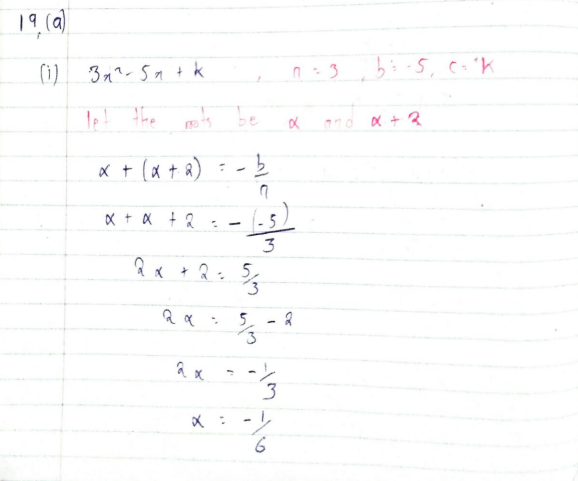 19,(a)
(i) 3x² - 5x + k , a = 3 , b = -5, c = k
let the roots be α and α + 2
α + (α + 2) = - b/a
α + α + 2 = - (-5)/3
2α + 2 = 5/3
2α = 5/3 - 2
2α = -1/3
α = -1/6